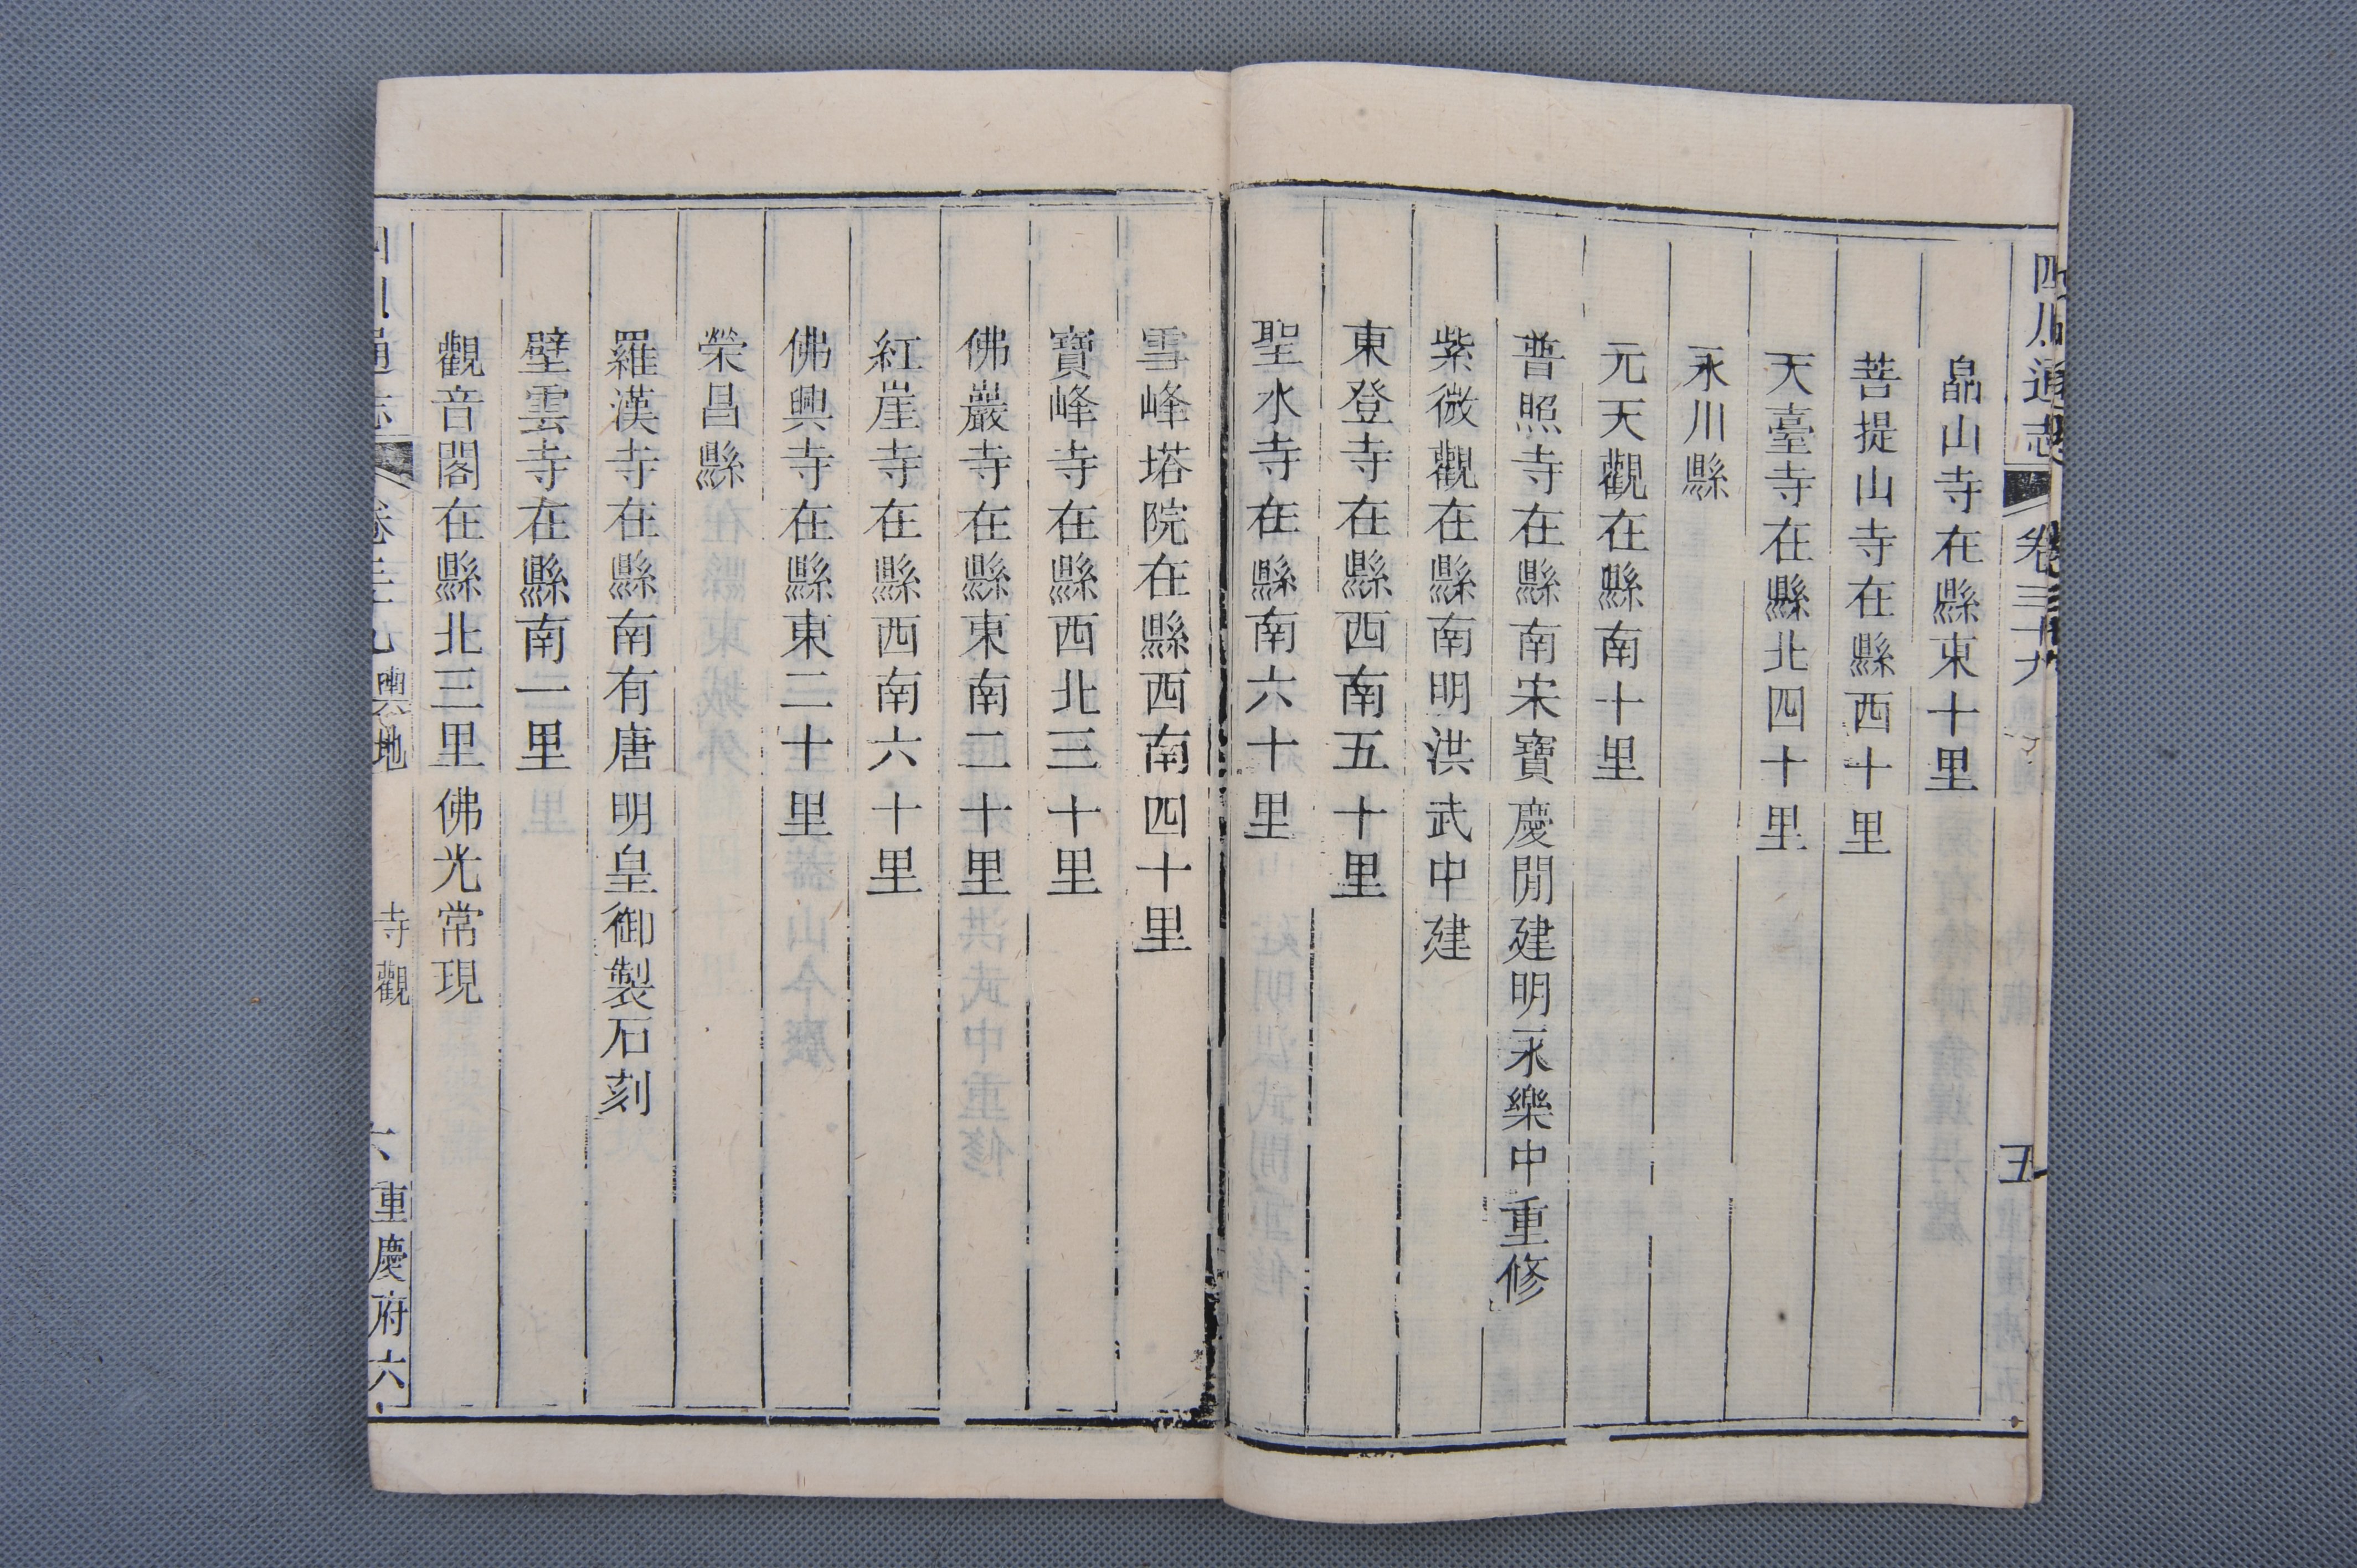 四川通志 卷三十九 五
皛山寺在縣東十里
菩提山寺在縣西十里
天臺寺在縣北四十里
永川縣
元天觀在縣南十里
普照寺在縣南宋寶慶閒建明永樂中重修
紫微觀在縣南明洪武中建
東登寺在縣西南五十里
聖水寺在縣南六十里
雪峰塔院在縣西南四十里
寶峰寺在縣西北三十里
佛巖寺在縣東南二十里
紅崖寺在縣西南六十里
佛興寺在縣東二十里
榮昌縣
羅漢寺在縣南有唐明皇御製石刻
壁雲寺在縣南一里
觀音閣在縣北三里佛光常現
四川通志 卷三十九 輿地 寺觀 六 重慶府六